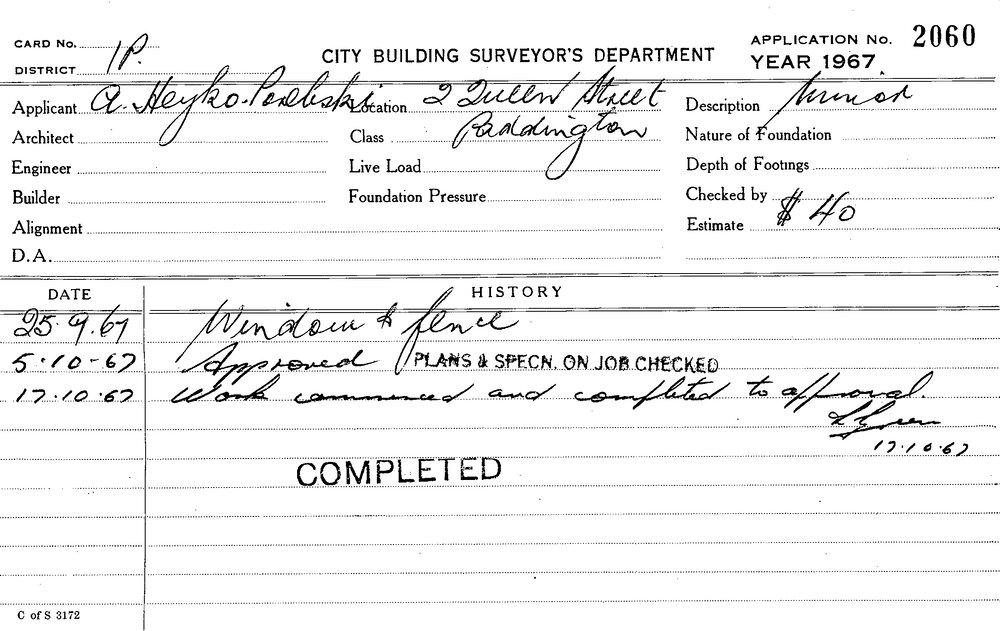 CARD No. 1P.
DISTRICT
CITY BUILDING SURVEYOR'S DEPARTMENT
APPLICATION No. 2060
YEAR 1967
Applicant A. Heyko-Porebski Location 2 Queen Street Description Minor
Architect Class Paddington Nature of Foundation
Engineer Live Load Depth of Footings
Builder Foundation Pressure Checked by
Alignment Estimate $ 40
D.A.
DATE HISTORY
25.9.67 Window & fence
5.10-67 Approved PLANS & SPECN. ON JOB CHECKED
17.10.67 Work commenced and completed to approval.
17.10.67
COMPLETED
C of S 3172